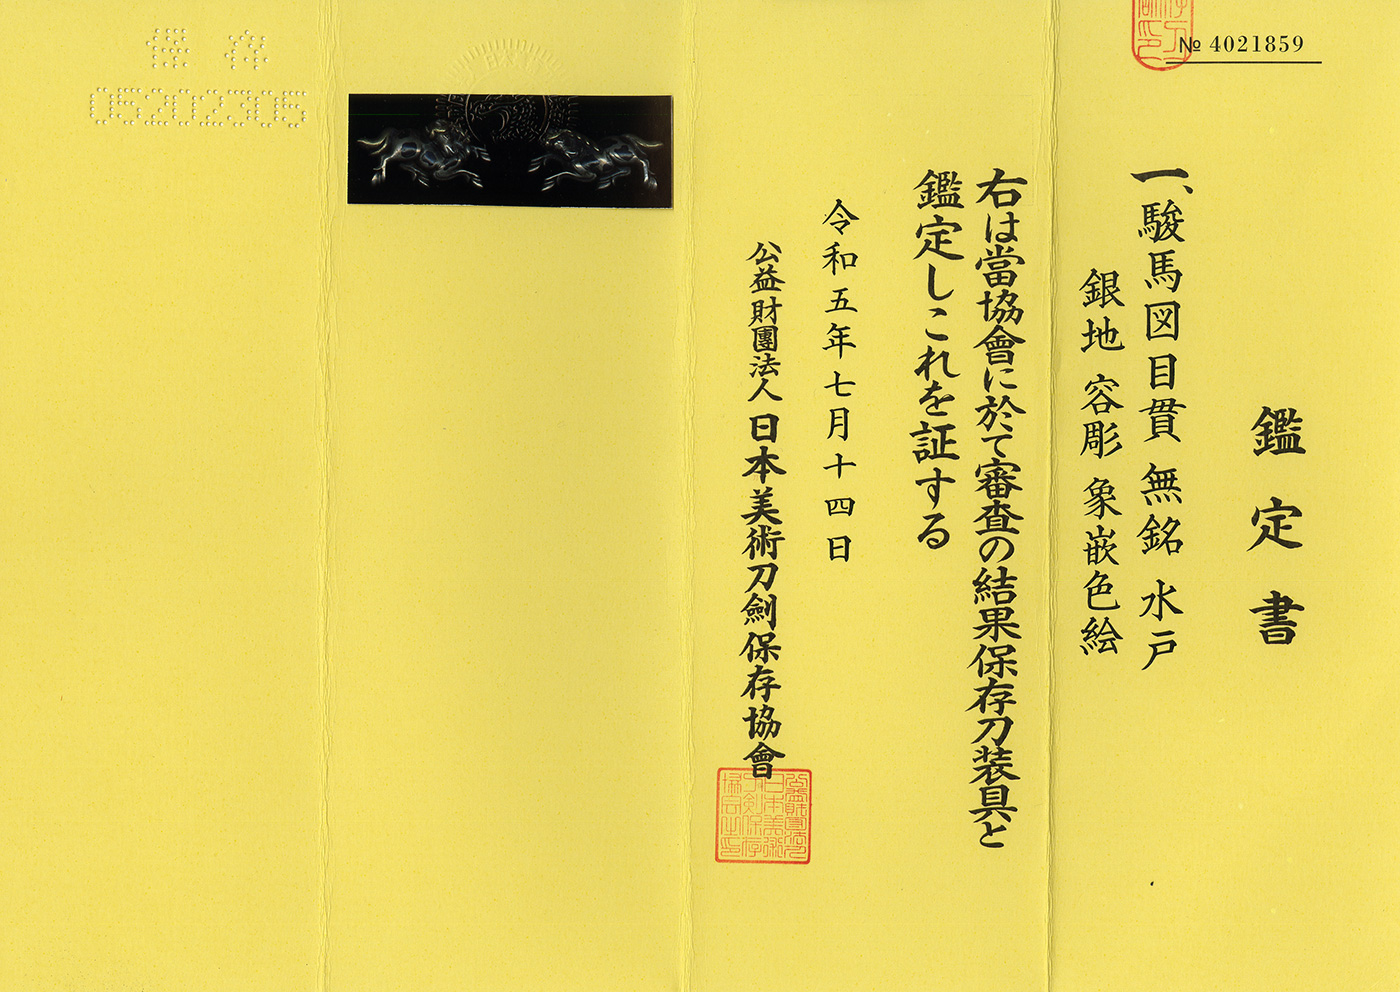 № 4021859
鑑定書
一、駿馬図目貫 無銘 水戸
銀地 容彫 象嵌色絵
右は當協會に於て審査の結果保存刀装具と
鑑定しこれを証する
令和五年七月十四日
公益財團法人 日本美術刀劍保存協會
保存
05202305